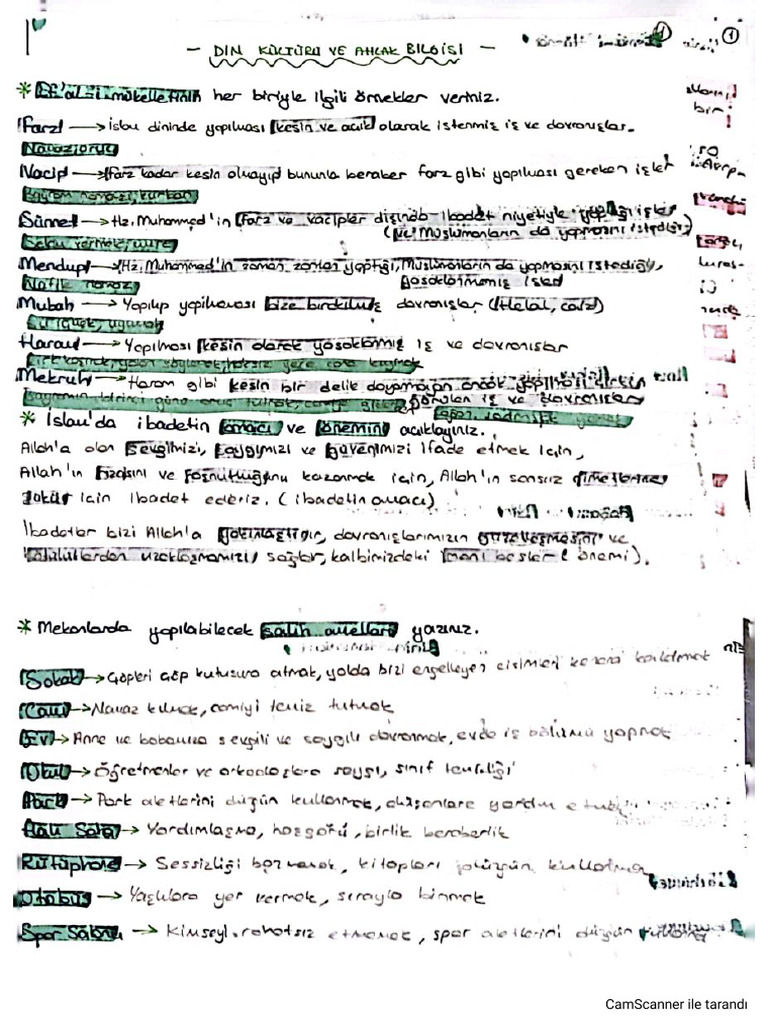 1
- DİN KÜLTÜRÜ VE AHLAK BİLGİSİ -
* Ef'al-i mükellefinin her biriyle ilgili örnekler veriniz.
Farz → İslam dininde yapılması kesin ve açık olarak istenmiş iş ve davranışlar.
Namaz, oruç
Vacip → Farz kadar kesin olmayıp bununla beraber farz gibi yapılması gereken işler
Bayram namazı, kurban
Sünnet → Hz. Muhammed'in farz ve vacipler dışında ibadet niyetiyle yaptığı işler
(ve Müslümanların da yapmasını istediği)
Selam vermek, umre
Mendup → Hz. Muhammed'in zaman zaman yaptığı, Müslümanların da yapmasını istediği,
Nafile namaz
Mubah → Yapılıp yapılmaması bize bırakılmış davranışlar (Helal, caiz)
Su içmek, uyumak
Haram → Yapılması kesin olarak yasaklanmış iş ve davranışlar
Mekruh → Haram gibi kesin bir delil dayamadan ancak yapılması çirkin
görülen iş ve davranışlar
* İslam'da ibadetin amacı ve önemini açıklayınız.
Allah'a olan sevgimizi, saygımızı ve güvenimizi ifade etmek için,
Allah'ın rızasını ve hoşnutluğunu kazanmak için, Allah'ın sonsuz nimetlerine
şükür için ibadet ederiz. (ibadetin amacı)
İbadetler bizi Allah'a yakınlaştırır, davranışlarımızın güzelleşmesini ve
kötülüklerden uzaklaşmamızı sağlar, kalbimizdeki imanı besler (önemi).
* Mekanlarda yapılabilecek salih amelleri yazınız.
Sokak → Çöpleri çöp kutusuna atmak, yolda bizi engelleyen cisimleri kenara kaldırmak
Cami → Namaz kılmak, camiyi temiz tutmak
Ev → Anne ve babamıza sevgili ve saygılı davranmak, evde iş bölümü yapmak
Okul → Öğretmenler ve arkadaşlara saygı, sınıf temizliği
Park → Park aletlerini düzgün kullanmak, düşenlere yardım etmek
Halı Saha → Yardımlaşma, hoşgörü, birlik beraberlik
Kütüphane → Sessizliği bozmamak, kitapları düzgün kullanma
Otobüs → Yaşlılara yer vermek, sırayla binmek
Spor Salonu → Kimseyi rahatsız etmemek, spor aletlerini düzgün kullanma
CamScanner ile tarandı